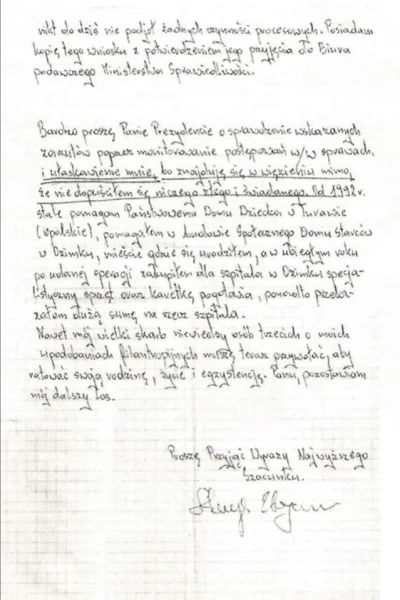 nikt do dziś nie podjął żadnych czynności procesowych. Posiadam
kopię tego wniosku z potwierdzeniem jego przyjęcia do Biura
podawczego Ministerstwa Sprawiedliwości.
Bardzo proszę Panie Prezydencie o sprawdzenie wskazanych
zarzutów poprzez monitorowanie postępowań w/w sprawach,
i ułaskawienie mnie, bo znajduję się w więzieniu mimo,
że nie dopuściłem się niczego złego i świadomego. Od 1992 r.
stale pomagam Państwowemu Domu Dziecka w Turawie
(opolskie), pomagałem w budowie Społecznego Domu starców
w Ozimku, mieście gdzie się urodziłem, a w ubiegłym roku
po udanej operacji zakupiłem dla szpitala w Ozimku specja-
listyczny sprzęt oraz karetkę pogotowia, ponadto przeka-
załem dużą sumę na rzecz szpitala.
Nawet mój wielki skarb niewiedzy osób trzecich o moich
upodobaniach filantropijnych muszę teraz przywołać, aby
ratować swoją rodzinę, życie i egzystencję. Panu, pozostawiam
mój dalszy los.
Proszę Przyjąć Wyrazy Najwyższego
Szacunku.